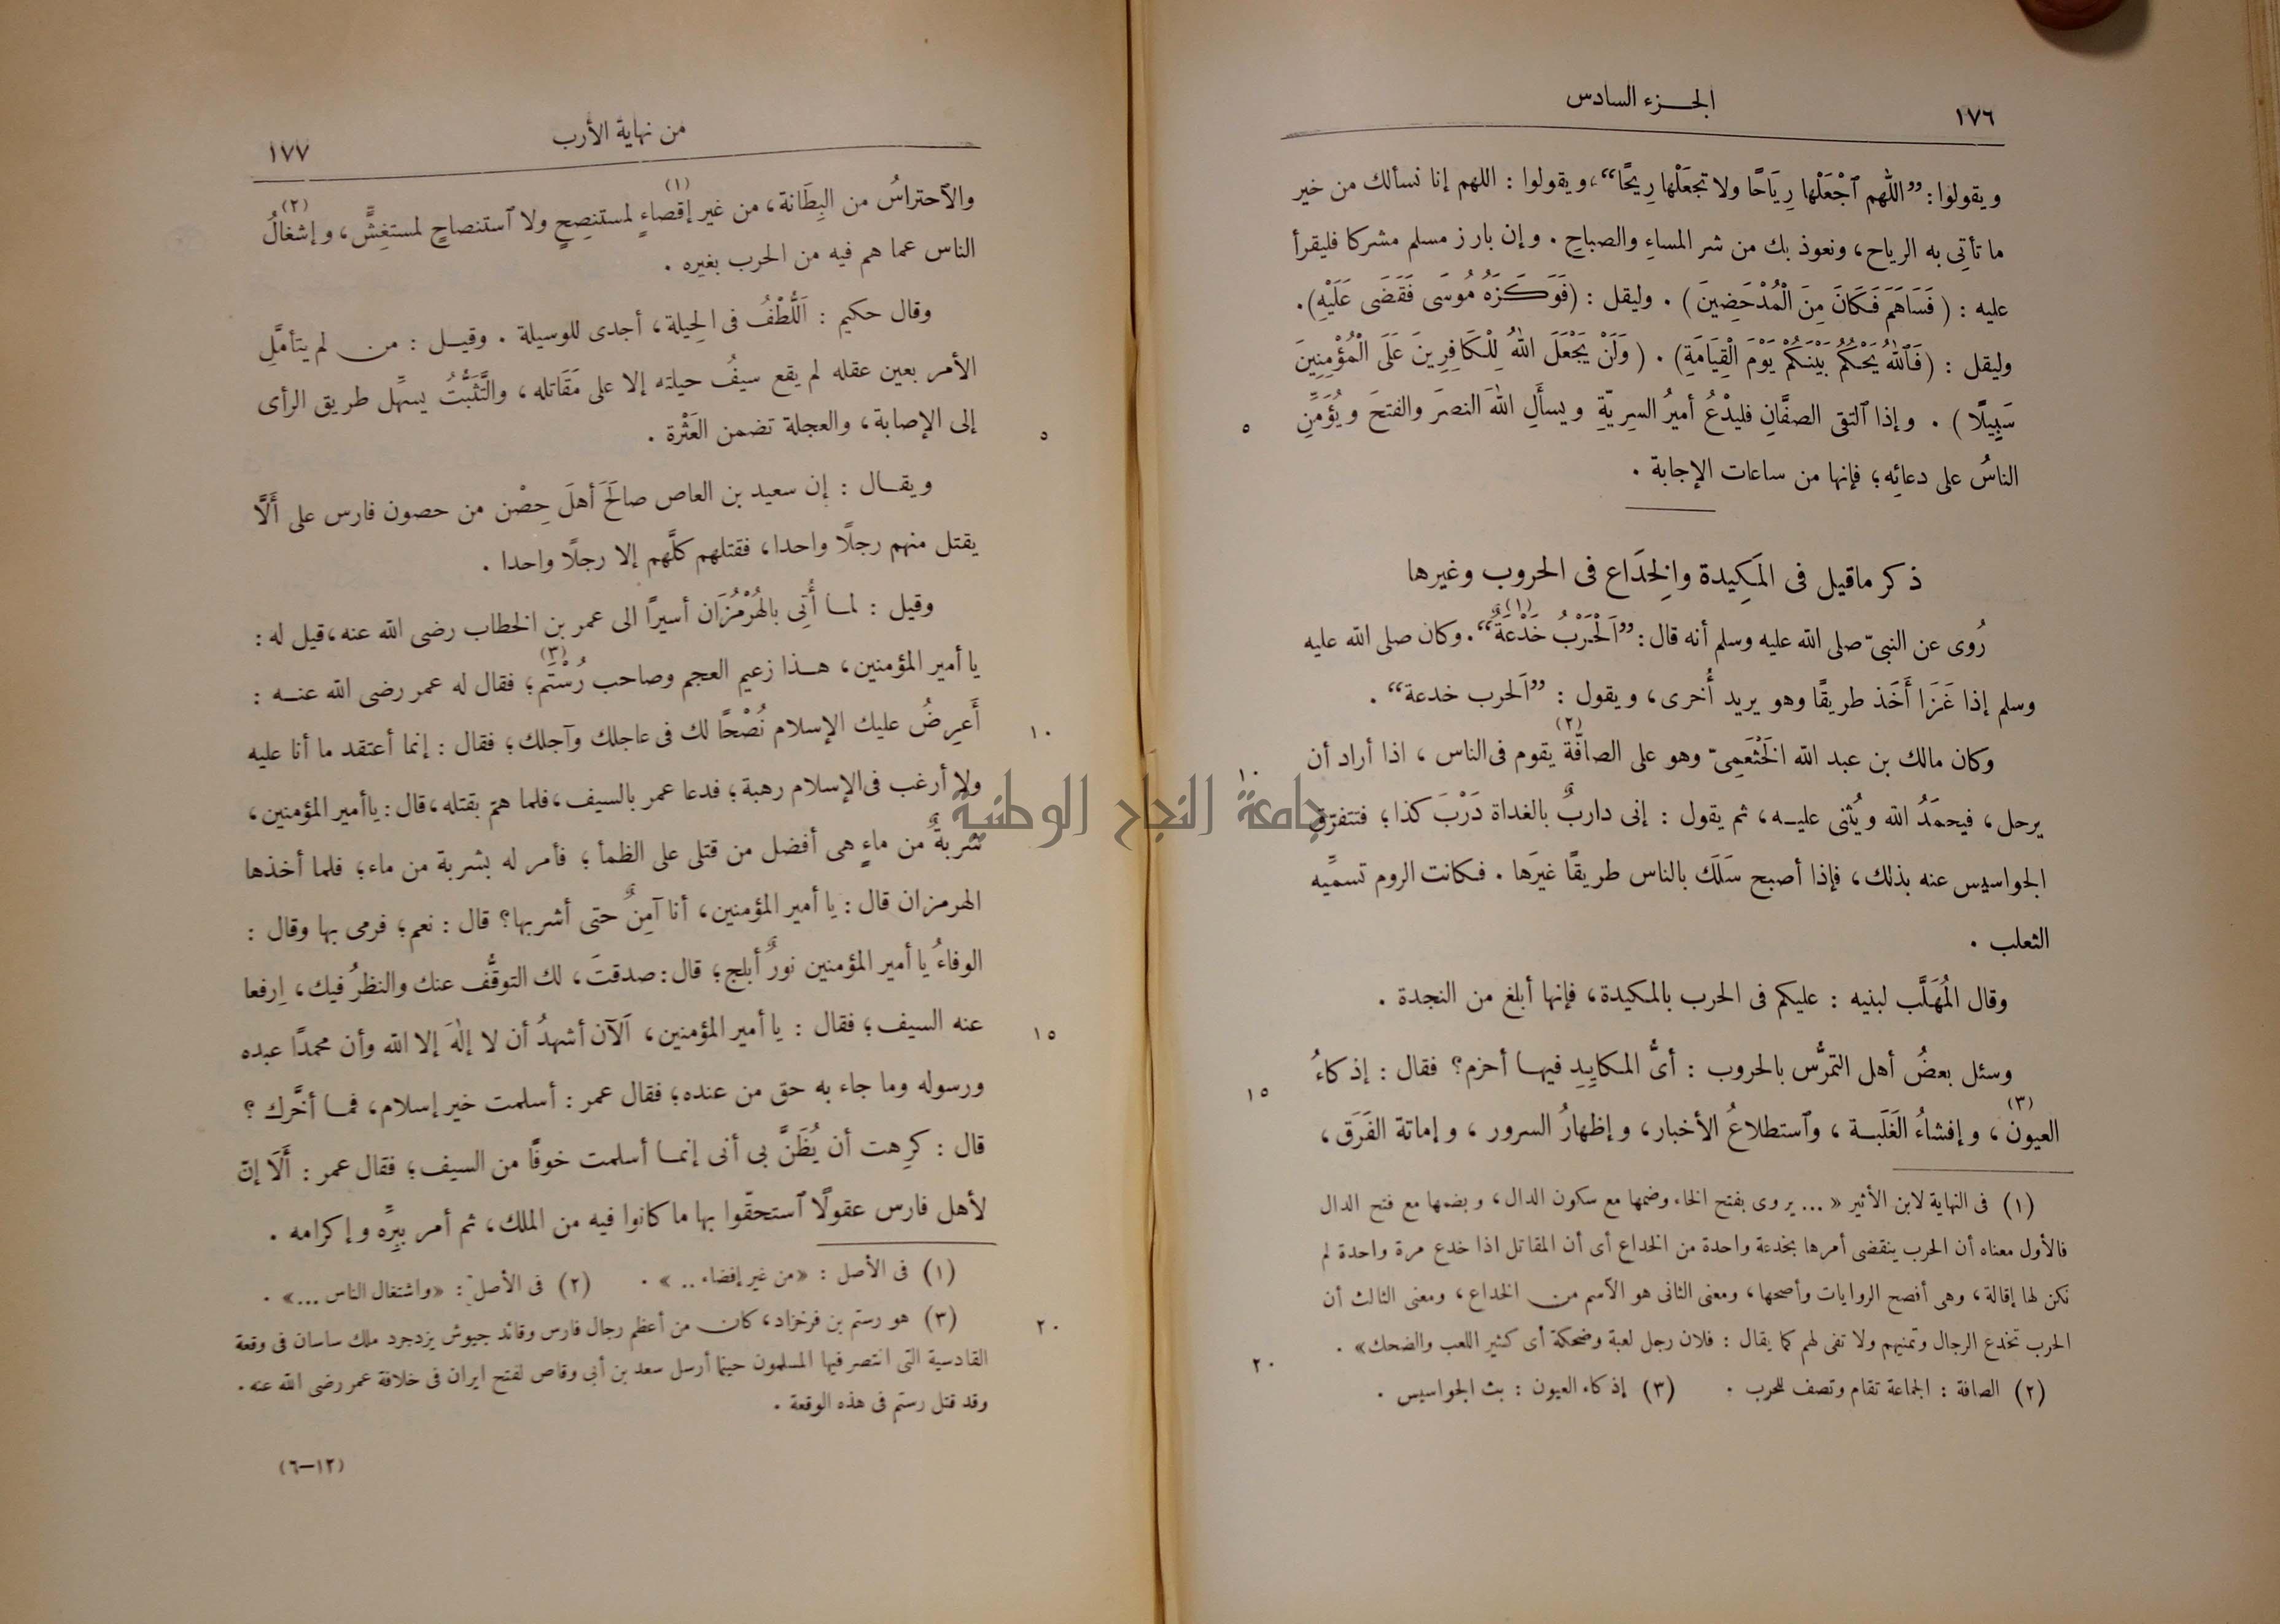 ١٧٦
الجـزء السادس
ويقولوا: ”اللّٰهم ٱجْعَلْها رِيَاحًا ولا تجعَلْها رِيحًا“، ويقولوا : اللهم إنا نسألك من خير
ما تأتِى به الرياح، ونعوذ بك من شر المساءِ والصباحِ . وإن بارز مسلم مشركا فليقرأ
عليه : (فَسَاهَمَ فَكَانَ مِنَ الْمُدْحَضِينَ) . وليقل : (فَوَكَزَهُ مُوسَى فَقَضَى عَلَيْهِ).
وليقل : (فَٱللهُ يَحْكُمُ بَيْنَكُمْ يَوْمَ الْقِيَامَةِ) . (وَلَنْ يَجْعَلَ اللهُ لِلْكَافِرِينَ عَلَى الْمُؤْمِنِينَ
سَبِيلًا) . وإذا ٱلتقى الصفَّانِ فليدْعُ أميرُ السرِيّةِ ويسأَلِ اللهَ النصرَ والفتحَ ويُؤَمِّنِ
٥
الناسُ على دعائِه؛ فإنها من ساعات الإجابة .
ذكر ماقيل فى المَكِيدة والِخدَاع فى الحروب وغيرها
رُوى عن النبىّ صلى الله عليه وسلم أنه قال: ”اَلْحَرْبُ خَدْعَةٌ (١)“. وكان صلى الله عليه
وسلم إذا غَزَا أَخَذ طريقًا وهو يريد أُخرى، ويقول : ”اَلحرب خدعة“ .
وكان مالك بن عبد الله الخَثْعَمِىّ وهو على الصافّة (٢) يقوم فى الناس ، اذا أراد أن
١٠
يرحل، فيحمَدُ الله ويُثنى عليـه، ثم يقول : إنى داربٌ بالغداة دَرْبَ كذا؛ فتتفرّق
الجواسيس عنه بذلك، فإذا أصبح سَلَك بالناس طريقًا غيرَها . فكانت الروم تسمِّيه
الثعلب .
وقال المُهَلَّب لبنيه : عليكم فى الحرب بالمكيدة، فإنها أبلغ من النجدة .
وسئل بعضُ أهل التمرُّس بالحروب : أىُّ المكايِدِ فيهـا أحزم؟ فقال : إذكاءُ
١٥
العيون (٣)، وإفشاءُ الغَلَبـة ، وٱستطلاعُ الأخبار، وإظهارُ السرور ، وإماتة الفَرَق ،
(١) فى النهاية لابن الأثير « ... يروى بفتح الخاء وضمها مع سكون الدال ، وبضمها مع فتح الدال
فالأول معناه أن الحرب ينقضى أمرها بخدعة واحدة من الخداع أى أن المقاتل اذا خدع مرة واحدة لم
تكن لها إقالة ، وهى أفصح الروايات وأصحها، ومعنى الثانى هو الآسم من الخداع ، ومعنى الثالث أن
الحرب تخدع الرجال وتمنيهم ولا تفى لهم كما يقال : فلان رجل لعبة وضحكة أى كثير اللعب والضحك» .
٢٠
(٢) الصافة : الجماعة تقام وتصف للحرب . (٣) إذكاء العيون : بث الجواسيس .
من نهاية الأرب
١٧٧
والآحتراسُ من البِطَانة، من غير إقصاءٍ (١) لمستنصِحٍ ولا ٱستنصاحٍ لمستغِشٍّ، وإشغالُ (٢)
الناس عما هم فيه من الحرب بغيره .
وقال حكيم : اَللُّطْفُ فى الِحيلة، أجدى للوسيلة . وقيـل : من لم يتأمَّلِ
الأمر بعين عقله لم يقع سيفُ حيلته إلا على مَقَاتله، والتَّثبُّتُ يسهِّل طريق الرأى
إلى الإصابة، والعجلة تضمن العَثْرة .
٥
ويقـال : إن سعيد بن العاص صالَحَ أهلَ حِصْن من حصون فارس على أَلَّا
يقتل منهم رجلًا واحدا، فقتلهم كلَّهم إلا رجلًا واحدا .
وقيل : لمـا أُتِى بالهُرْمُزَان أسيرًا الى عمر بن الخطاب رضى الله عنه، قيل له :
يا أمير المؤمنين، هـذا زعيم العجم وصاحب رُسْتَم (٣)؛ فقال له عمر رضى الله عنـه :
أَعرِضُ عليك الإسلام نُصْحًا لك فى عاجلك وآجلك؛ فقال : إنما أعتقد ما أنا عليه
١٠
ولا أرغب فى الإسلام رهبة؛ فدعا عمر بالسيف، فلما همّ بقتله، قال: يا أمير المؤمنين،
شربةٌ من ماءٍ هى أفضل من قتلى على الظمأ ؛ فأمر له بشربة من ماء؛ فلما أخذها
الهرمزان قال : يا أمير المؤمنين، أنا آمِنٌ حتى أشربها؟ قال : نعم؛ فرمى بها وقال :
الوفاءُ يا أمير المؤمنين نورٌ أبلج؛ قال: صدقتَ، لك التوقُّف عنك والنظرُ فيك، اِرفعا
عنه السيف؛ فقال : يا أمير المؤمنين، اَلآن أشهدُ أن لا إلٰهَ إلا الله وأن محمدًا عبده
١٥
ورسوله وما جاء به حق من عنده؛ فقال عمر : أسلمت خير إسلام، فمـا أخَّرك ؟
قال : كرِهت أن يُظَنَّ بى أنى إنمـا أسلمت خوفًا من السيف؛ فقال عمر : أَلَا إنّ
لأهل فارس عقولًا ٱستحقّوا بها ما كانوا فيه من الملك، ثم أمر بِبِرِّه وإكرامه .
(١) فى الأصل : «من غير إفضاء .. » . (٢) فى الأصل : «واشتغال الناس ...» .
(٣) هو رستم بن فرخزاد، كان من أعظم رجال فارس وقائد جيوش يزدجرد ملك ساسان فى وقعة
٢٠
القادسية التى انتصر فيها المسلمون حينما أرسل سعد بن أبى وقاص لفتح ايران فى خلافة عمر رضى الله عنه .
وقد قتل رستم فى هذه الوقعة .
(٦-١٢)
جامعة النجاح الوطنية